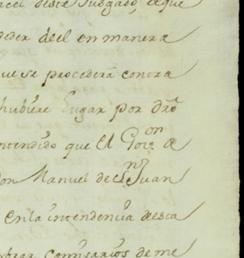 deste Juzgado, aque
ceder del en manera
ue se procederá contra
hubiere lugar por dro
ntendido que el Gov.on de
on Manuel de Sn Juan
en la intendencia desta
Comisarios de me